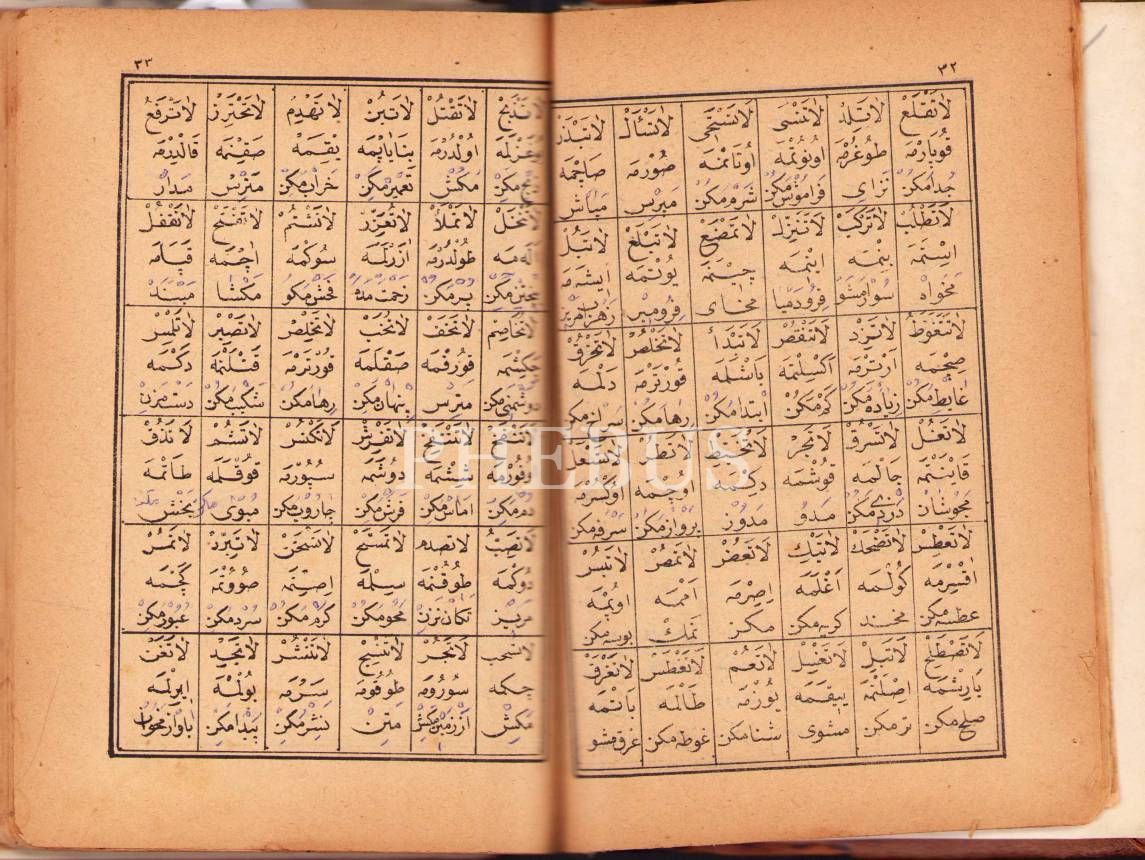 ٣٢
لاتقلع لاتلد لاتنسى لاتستحى لاتسأل لاتبذر
قوپارمه طوغرمه اونوتمه اوتانمه صورمه صاچمه
جدا مكن نزاى فراموش مكن شرم مكن مپرس مپاش
لاتطلب لاتركب لاتنزل لاتمضغ لاتبلع لاتبل
ايستمه بينمه اينمه چينمه يوتمه ايشه مه
مخواه سوار مشو فرود ميا مخاى فرومبر
لاتتغوط لاتزد لاتنقص لاتبدأ لاتخلص لاتخرق
صيچمه آرترمه اكسلتمه باشلمه قورترمه دلمه
غايط مكن زياده مكن كم مكن ابتدا مكن رها مكن
لاتغل لاتسرق لاتجر لاتخيط لاتطر لاتسعل
قاينتمه چالمه قوشمه ديكمه اوچمه اوكسرمه
مجوشان دزدى مكن مدو مدوز پرواز مكن سرفه مكن
لاتعطس لاتضحك لاتبك لاتعض لاتمص لاتبس
اقسرمه كولمه اغلمه ايصرمه اممه اوپمه
عطسه مكن مخند كريه مكن مكز بوسه مكن
لاتصطلح لاتبل لاتغسل لاتعم لاتغطس لاتغرق
باريشمه اصلتمه ييقمه يوزمه طالمه باتمه
صلح مكن تر مكن مشوى شنا مكن غوطه مكن غرق مشو
٣٣
لاتذبح لاتقتل لاتبن لاتهدم لاتحترز لاترفع
بوغزلمه اولدرمه بنا ياپمه ييقمه صقنمه قالدرمه
ذبح مكن مكش تعمير مكن خراب مكن مترس مدار
لاتنخل لاتملأ لاتعزر لاتشتم لاتفتح لاتقفل
اله مه طولدرمه ازرلمه سوكمه آچمه قپامه
پر مكن زحمت مده فحش مكو مكشا مبند
لاتخاصم لاتخف لاتخب لاتخلص لاتصبر لاتلمس
چكشمه قورقمه صقلمه قورترمه قتلنمه دكمه
دوشمنى مكن مترس پنهان مكن رها مكن شكيب مكن دست مزن
لاتنفخ لاتنتفخ لاتفرش لاتكنس لاتشم لاتذق
اوفورمه شيشمه دوشمه سپورمه قوقلمه طاتمه
دم مكن اماس مكن فرش مكن جاروب مكن مبوى مچش
لاتصب لاتصدم لاتمسح لاتسخن لاتبرد لاتمر
دوكمه طوقنمه سيلمه ايصيتمه صووتمه كچمه
مريز تكان مزن محو مكن كرم مكن سرد مكن عبور مكن
لاتسحب لاتجر لاتنسج لاتنشر لاتجد لاتغن
چكمه سورومه طوقومه سرمه بولمه ايرلمه
مكش از زمين مكش متن نشر مكن پيدا مكن باواز مخوان
PHEBUS